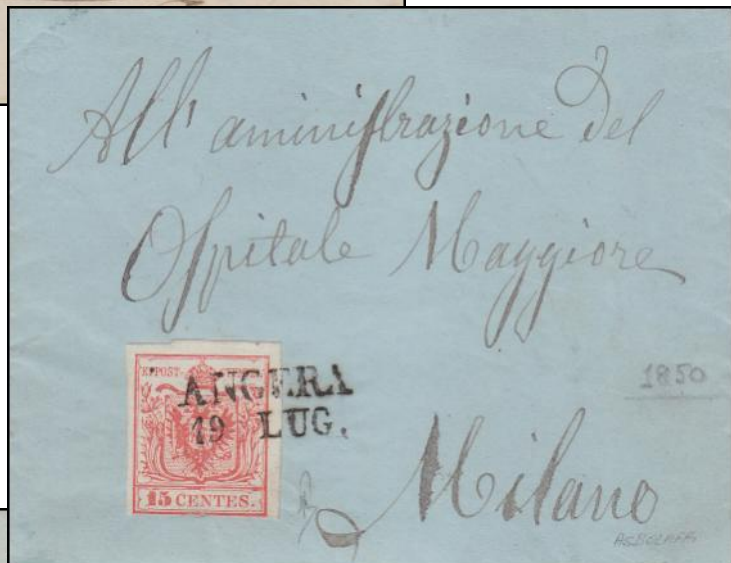 All' aminiſtrazione del
Oſpitale Maggiore
K.K.POST-
ANGERA
19 LUG.
1850
15 CENTES.
Milano